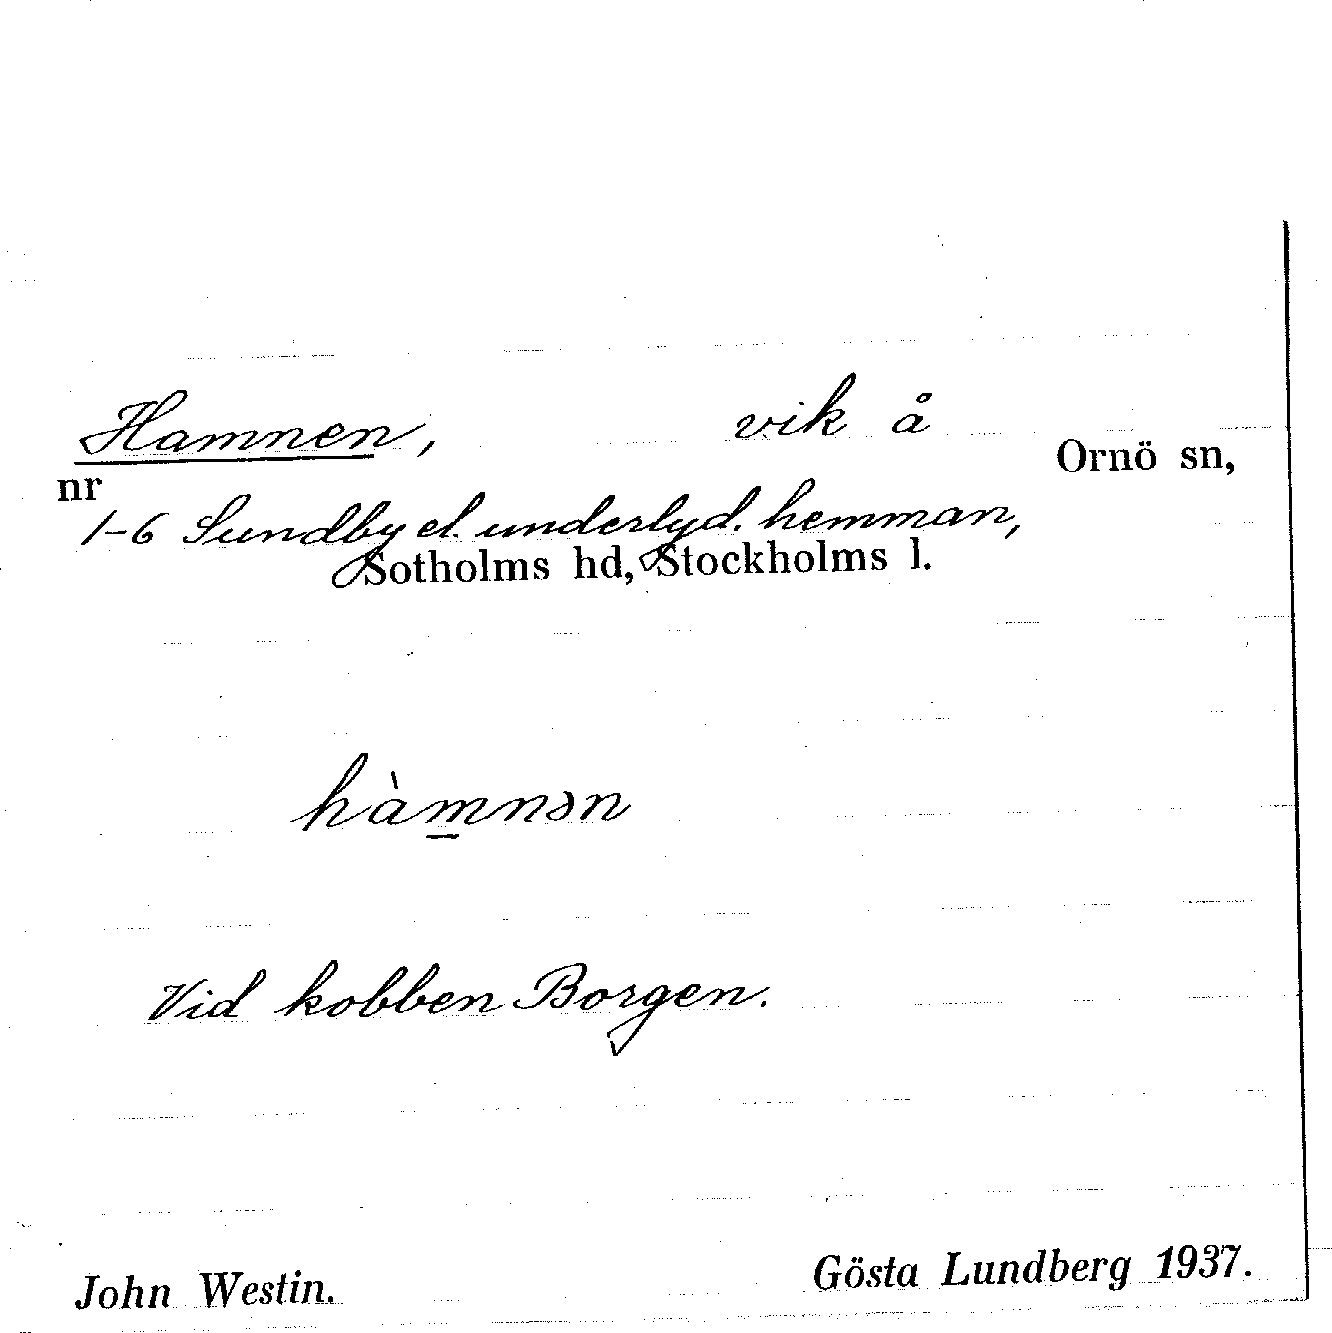 Hamnen, vik å Ornö sn,
nr
1-6 Sundby el. underlyd. hemman,
Sotholms hd, Stockholms l.
hàm̲nən
Vid kobben Borgen.
John Westin. Gösta Lundberg 1937.